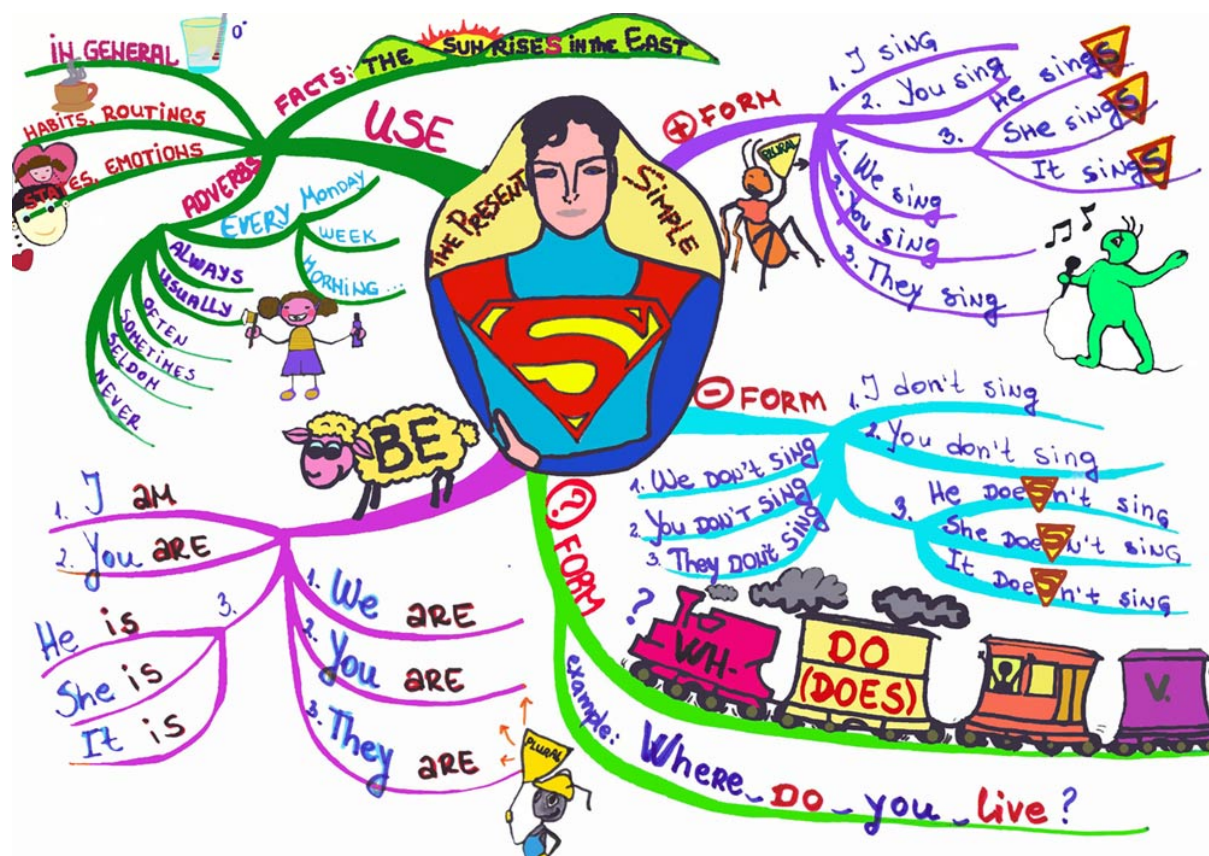 THE PRESENT SIMPLE
USE
FACTS: THE SUN RISES in the EAST
IN GENERAL
HABITS, ROUTINES
STATES, EMOTIONS
ADVERBS
EVERY MONDAY
WEEK
MORNING...
ALWAYS
USUALLY
OFTEN
SOMETIMES
SELDOM
NEVER
+ FORM
1. I sing
2. You sing
3.
He singS
She singS
It singS
PLURAL
1. We sing
2. You sing
3. They sing
- FORM
1. I don't sing
2. You don't sing
3.
He DoeSn't sing
She DoeSn't sing
It DoeSn't sing
1. We DON'T sing
2. You DON'T sing
3. They DON't sing
? FORM
?
WH-
DO
(DOES)
V.
example: Where_DO_you_live?
BE
1. I am
2. You aRE
3.
He is
She is
It is
1. We aRE
2. You aRE
3. They aRE
PLURAL
S